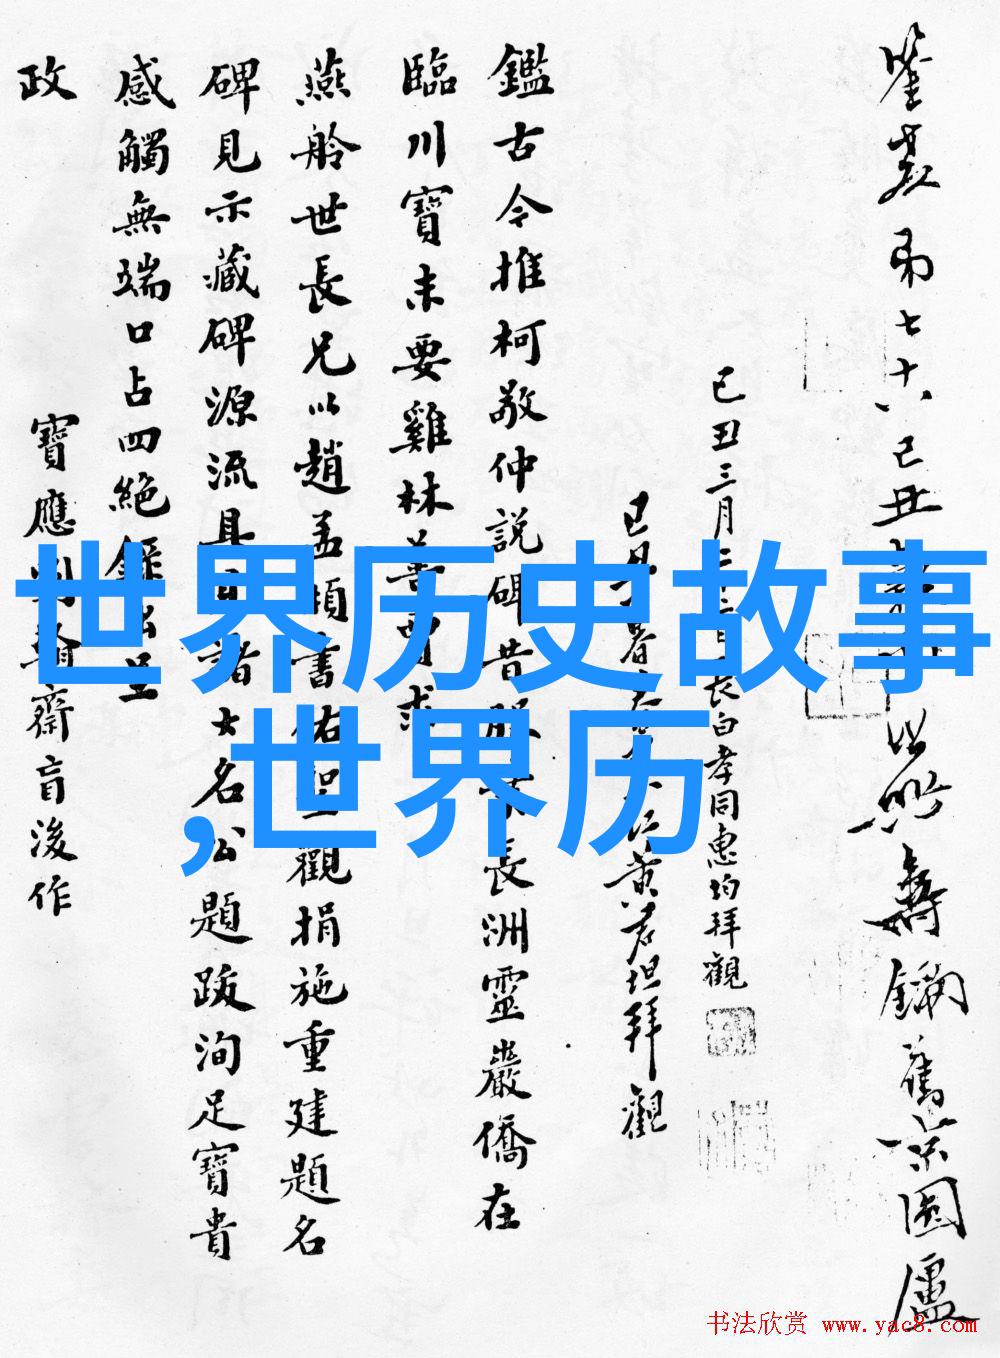 七十八己丑
己丑三月二長白孝同惠均拜觀
己丑暮春黃君坦拜觀
鑑古今推柯敬仲説碑昔長洲靈巖僑在
臨川寶未要雞林善賈求
燕舲世長兄以趙孟頫書佑聖觀捐施重建題名
碑見示藏碑源流具諸大名公題跋洵足寶貴
感觸無端口占四絕錄出呈
政
寶應齋盲浚作
世界历史故事
,世界历
书法欣赏 www.yac8.com